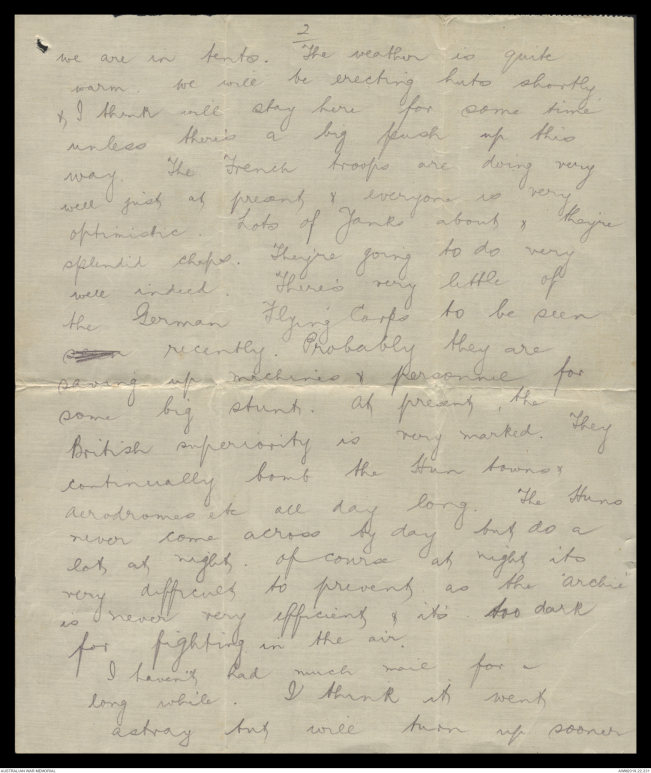 2
we are in tents. The weather is quite
warm. We will be erecting huts shortly
& I think will stay here for some time
unless there's a big push up this
way. The French troops are doing very
well just at present & everyone is very
optimistic. Lots of Yanks about & they're
splendid chaps. They're going to do very
well indeed. There's very little of
the German Flying Corps to be seen
recently. Probably they are
saving up machines & personnel for
some big stunt. At present, the
British superiority is very marked. They
continually bomb the Hun towns &
aerodromes etc all day long. The Huns
never come across by day but do a
lot at night, of course at night its
very difficult to prevent as the "Archie"
is never very efficient & it's too dark
for fighting in the air.
I haven't had much mail for a
long while. I think it went
astray but will turn up sooner
AUSTRALIAN WAR MEMORIAL